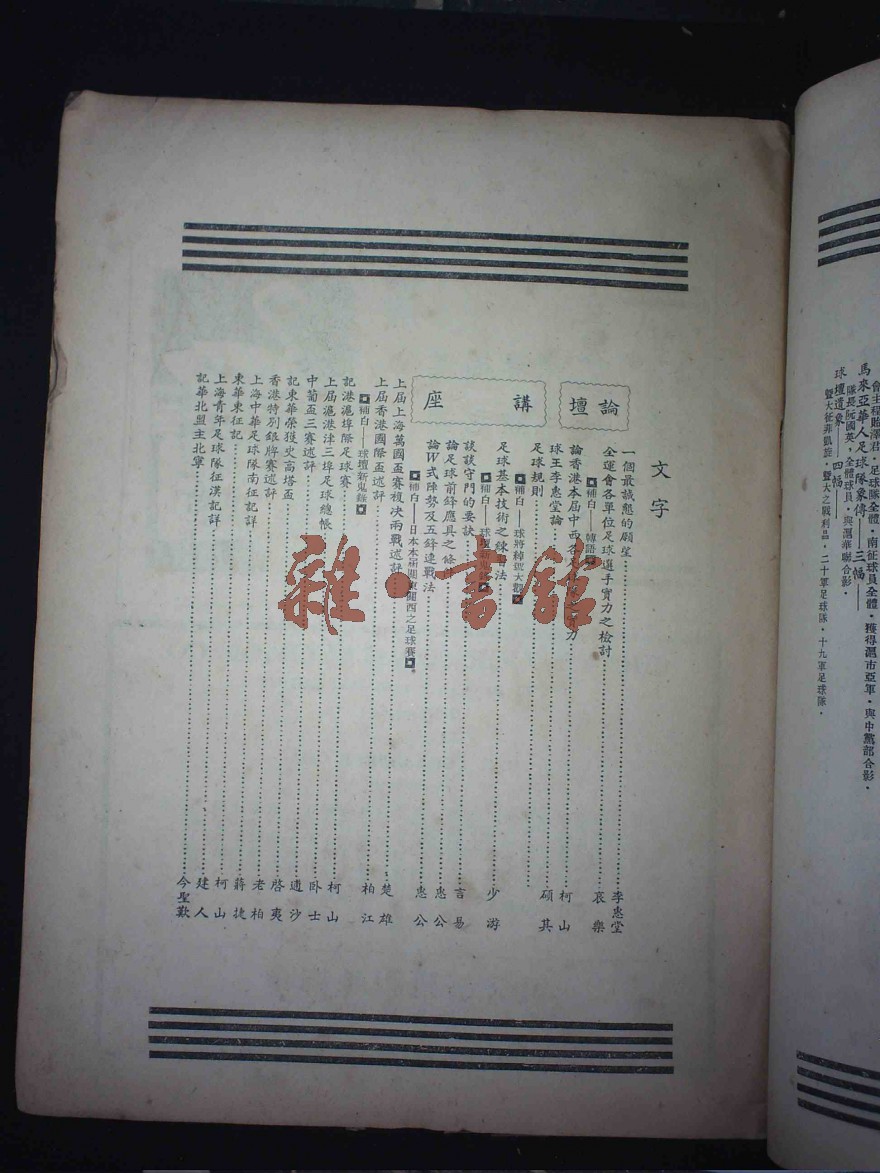 會主程貽澤君．足球隊全體．南征球員全體．獲得滬市亞軍．與中黨部合影．
馬來亞華人足球隊象傳——三幅
隊長阮國英．全體球員．與滬華聯合影．
球壇遺象——四幅
暨大征菲凱旋．暨大之戰利品．二十軍足球隊．十九軍足球隊．
文字
論壇
一個最誠懇的願望 李惠堂
全運會各單位足球選手實力之檢討 哀樂
補白——韓語
論香港本屆中西各 力 柯山
球王李惠堂論 碩其
足球規則
補白——球將綽號大觀
講座
足球基本技術之練習法 少游
補白——球
談談守門的要訣 言易
論足球前鋒應具之條 惠公
論W式陣勢及五鋒連戰法 惠公
補白——日本本 關東關西之足球賽
上屆上海萬國盃賽複决兩戰述評 楚雄
上屆香港國際盃述評 柏江
補白——球壇新鬼錄
記港滬埠際足球賽
上屆滬港津三埠足球總帳 柯山
中葡盃三賽述評 卧士
記東華榮獲史高塔盃 迺沙
香港特別銀牌賽述評 啓夷
上海中華足球隊南征記詳 老柏
東華東征記 蔣捷
上海青年足球隊征漢記詳 柯山
記華北盟主北寧 建人
今聖歎
雜·書館